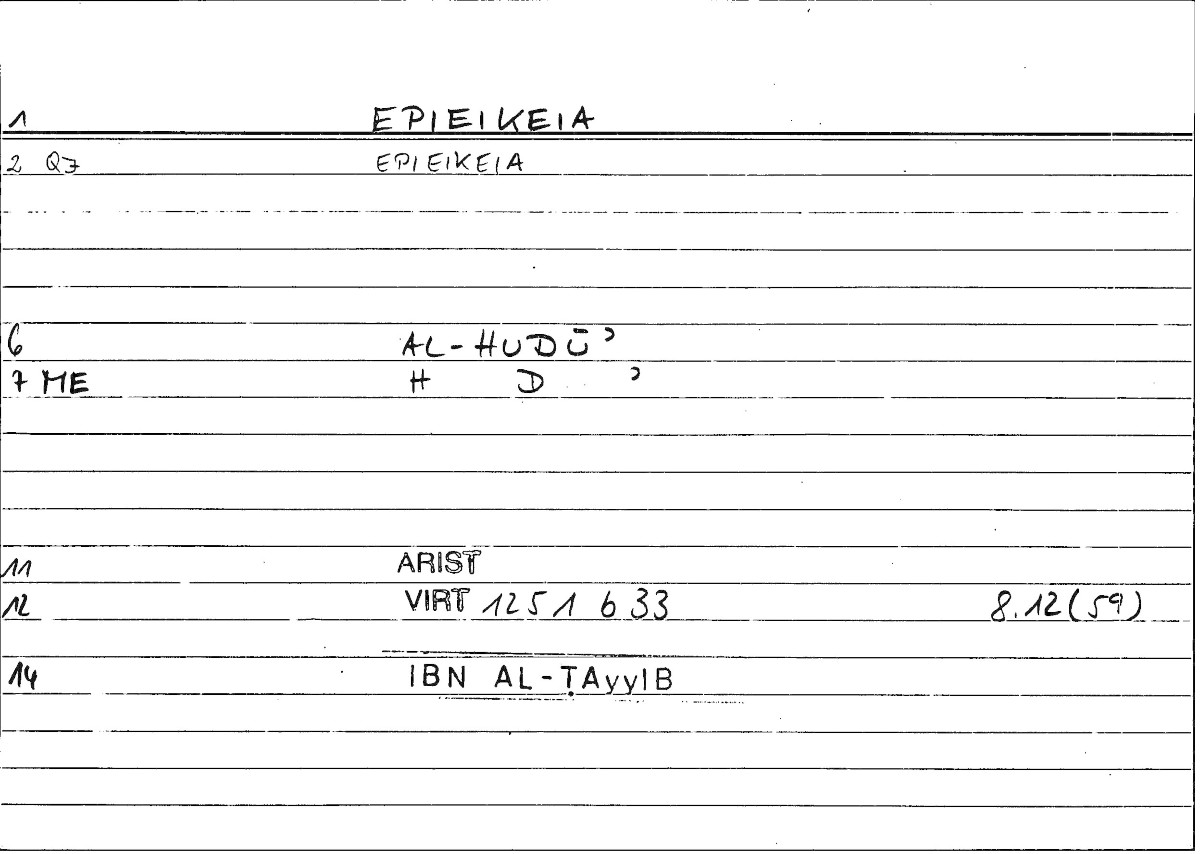 1 EPIEIKEIA
2 Q7 EPIEIKEIA
6 AL-HUDŪʾ
7 ME H D ʾ
11 ARIST
12 VIRT 1251 b 33 8.12(59)
14 IBN AL-ṬAyyIB